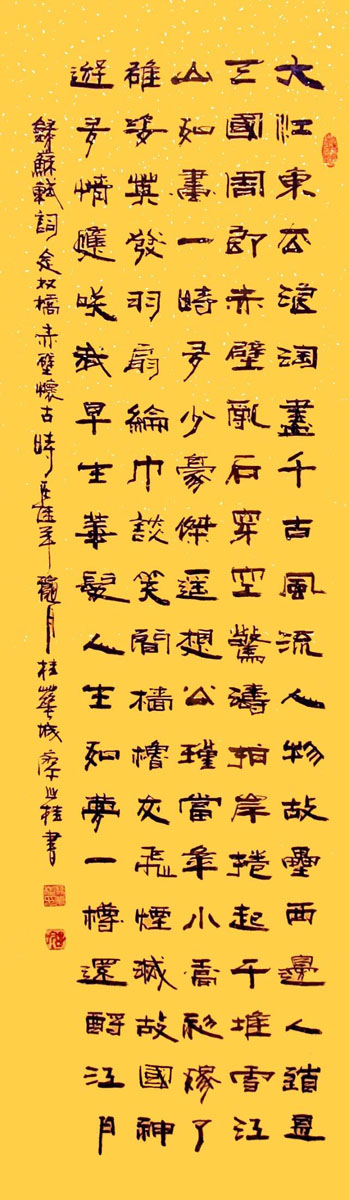 大江東去浪淘盡千古風流人物故壘西邊人道是
三國周郎赤壁亂石穿空驚濤拍岸捲起千堆雪江
山如畫一時多少豪傑遥想公瑾當年小喬初嫁了
雄姿英發羽扇綸巾談笑間檣櫓灰飛煙滅故國神
遊多情應咲我早生華髮人生如夢一樽還酹江月
錄蘇軾詞念奴橋赤壁懷古時年月桂華城桂書